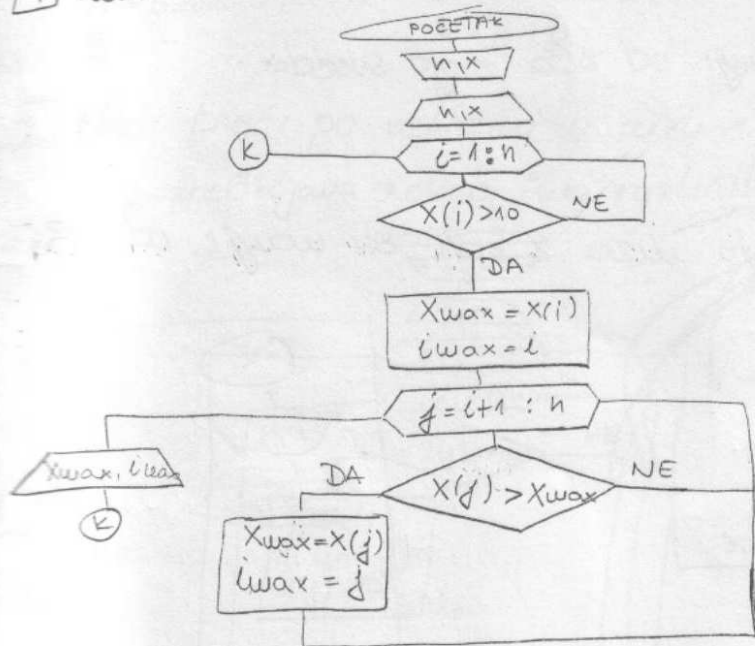 POČETAK
n,x
n,x
K
i=1:n
X(i)>10
NE
DA
Xmax=X(i)
imax=i
j=i+1:n
xmax, imax
K
DA
X(j)>Xmax
NE
Xmax=X(j)
imax=j